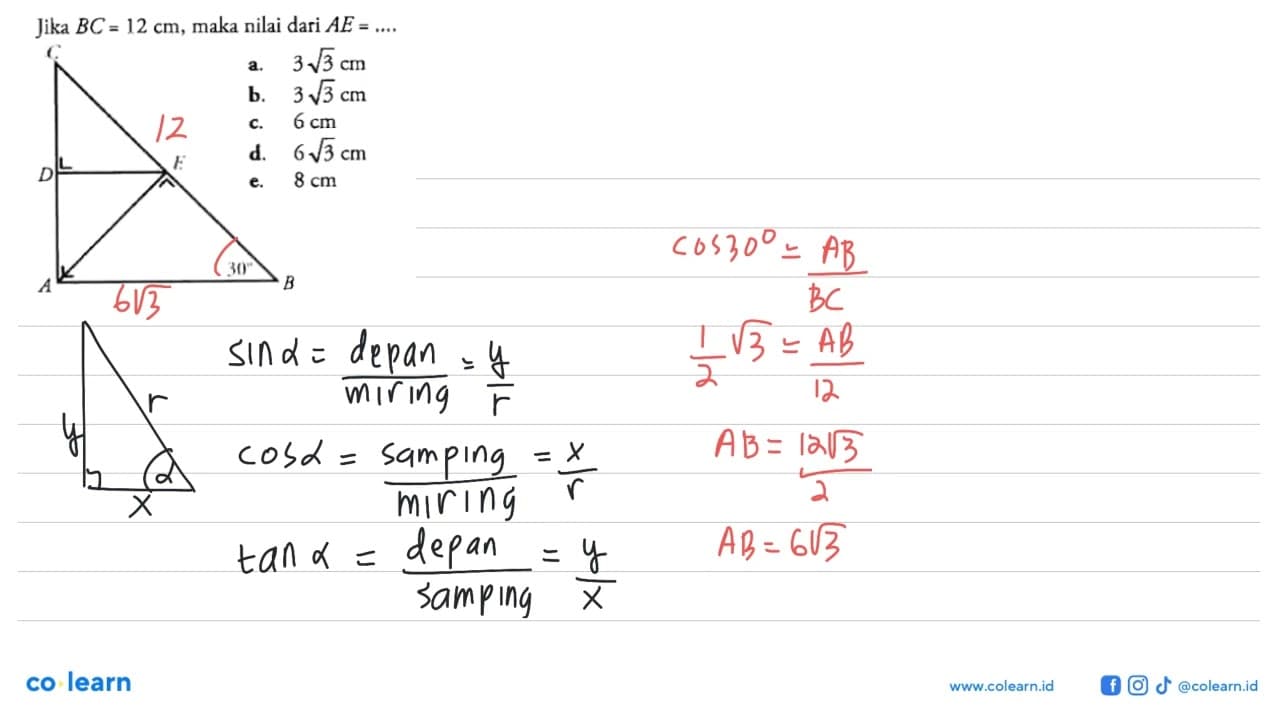 Jika BC = 12 cm, maka nilai dari AE = ....
C
a. 3√3 cm
b. 3√3 cm
12
c. 6 cm
E
d. 6√3 cm
D
e. 8 cm
30°
A
B
6√3
cos30° = AB/BC
1/2 √3 = AB/12
AB = 12√3/2
AB = 6√3
r
y
α
x
sin α = depan/miring = y/r
cos α = samping/miring = x/r
tan α = depan/samping = y/x
co learn
www.colearn.id
@colearn.id